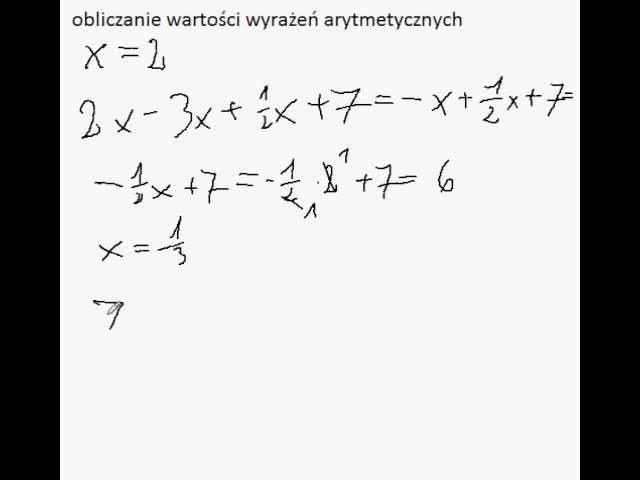 obliczanie wartości wyrażeń arytmetycznych
x = 2
2x - 3x + 1/2x + 7 = - x + 1/2x + 7 =
- 1/2x + 7 = - 1/2 · 2 1 + 7 = 6
1
x = 1/3
7